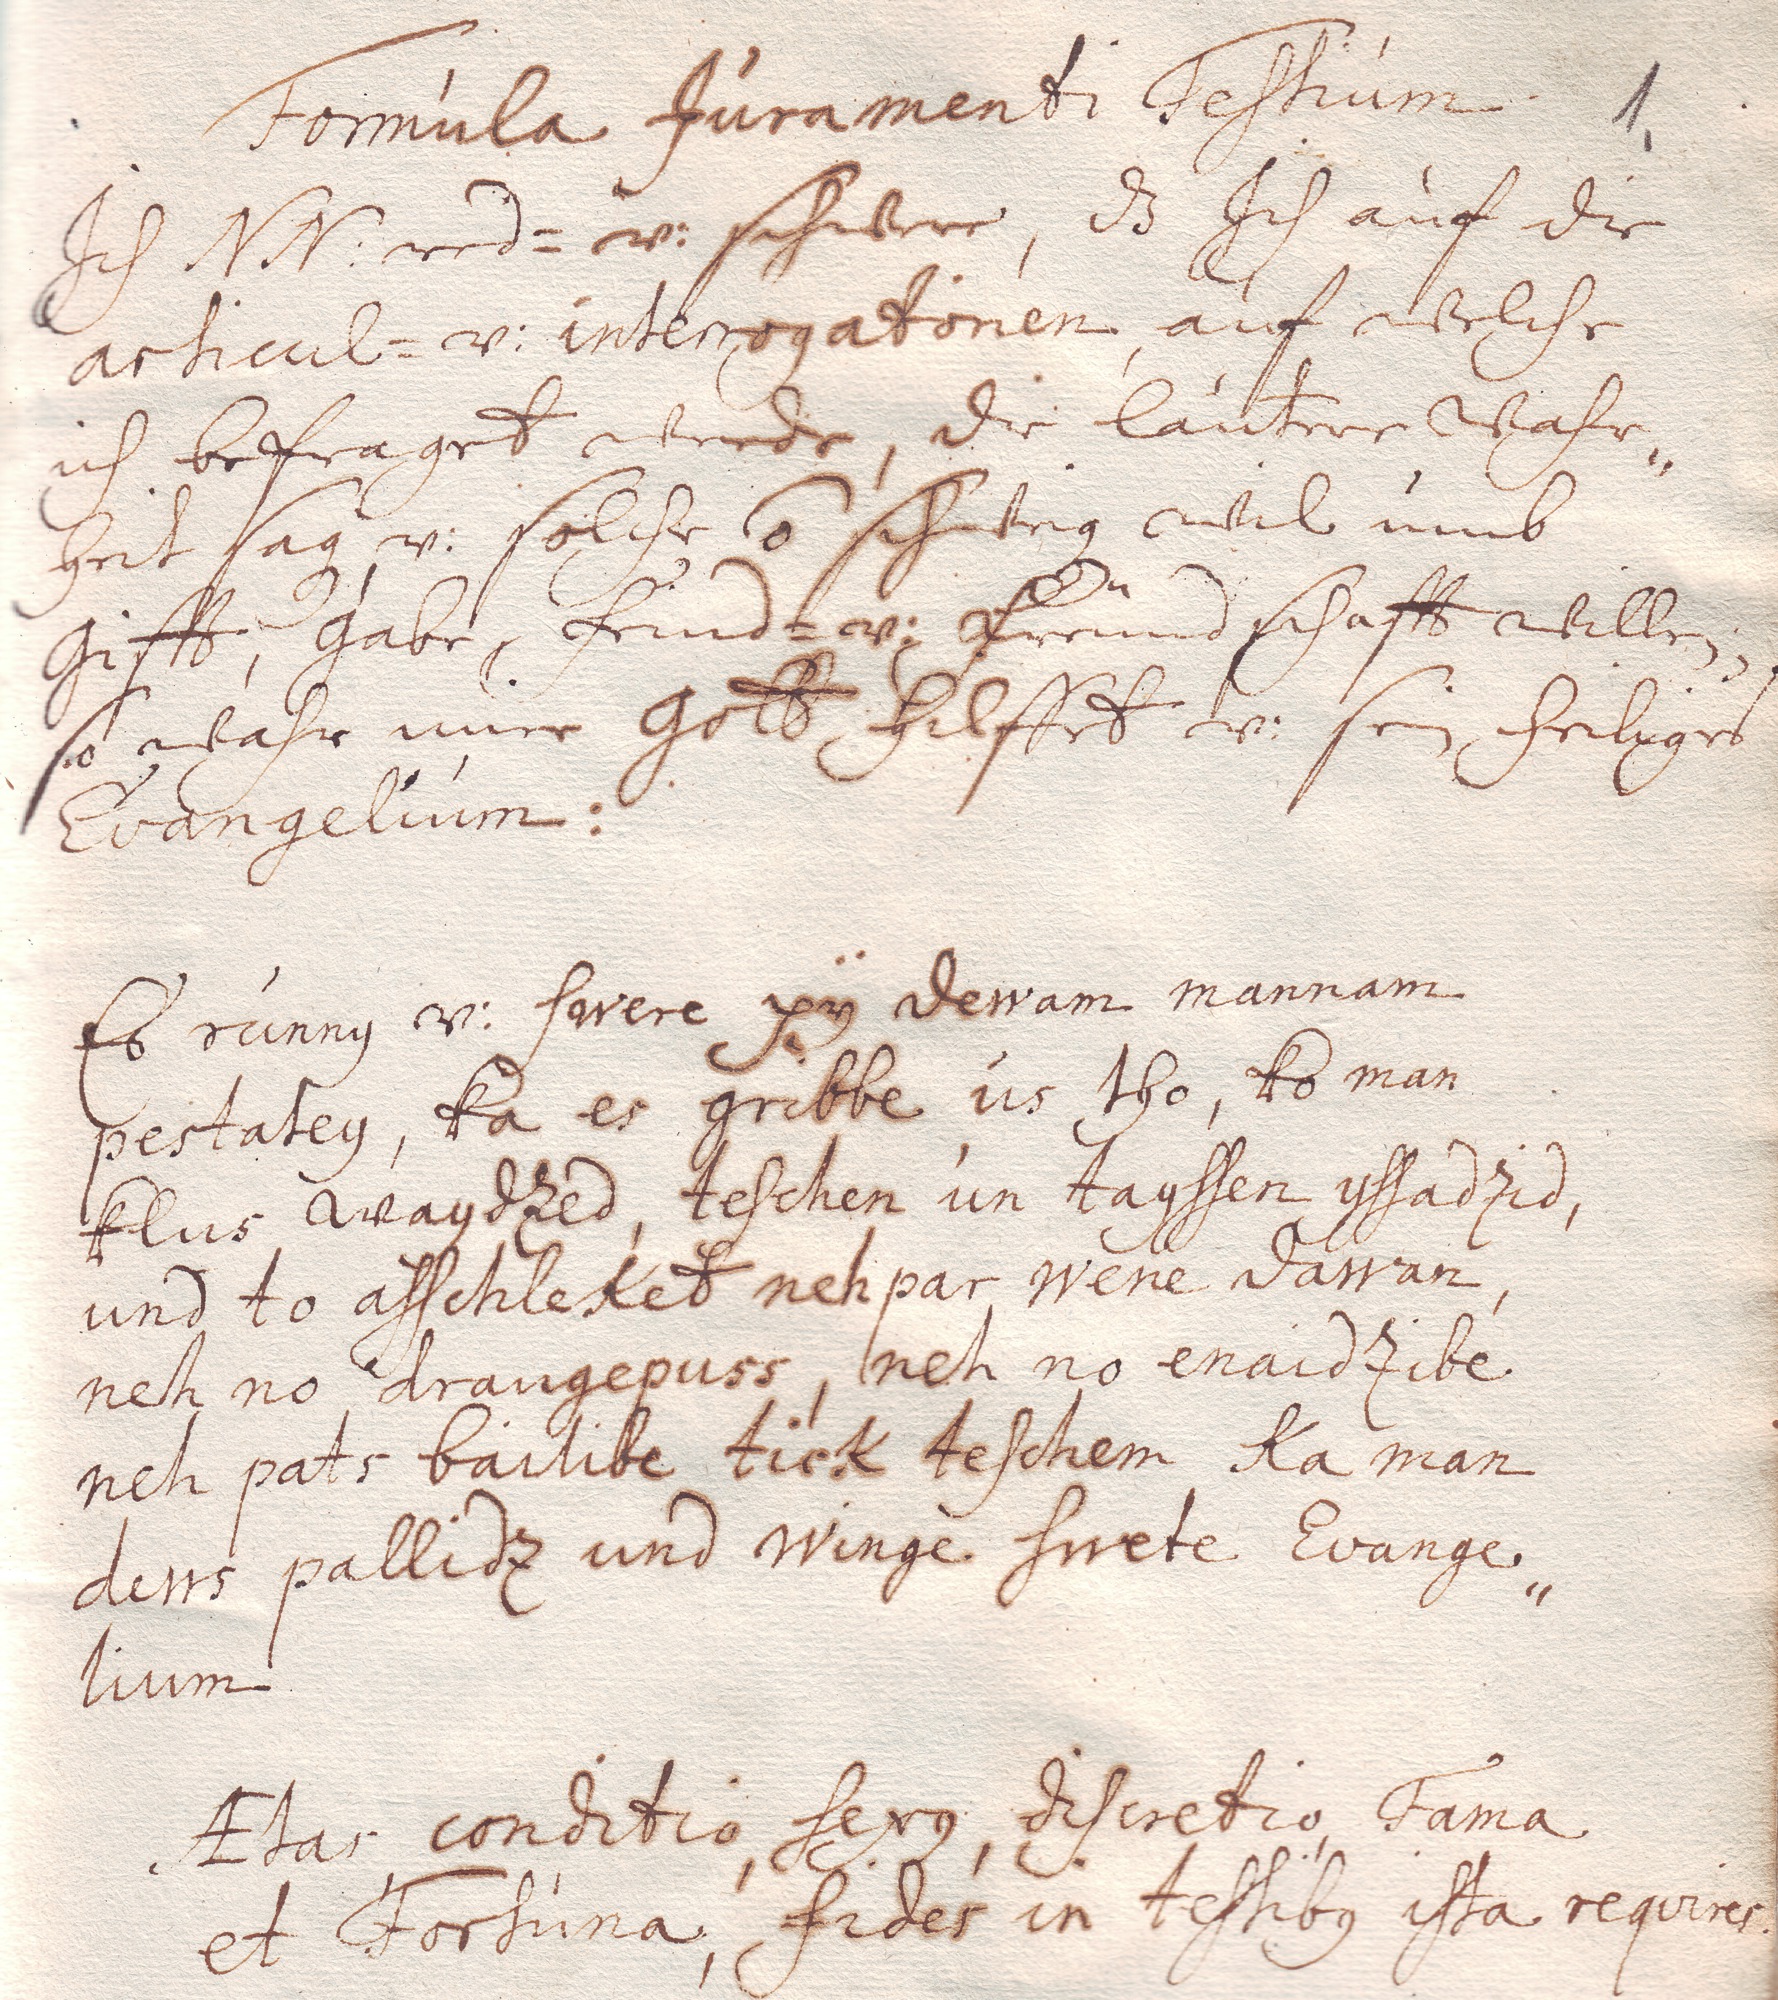 Formula Juramenti Testium 1.
Ich NN: red= v: schwere, dß Ich auf die
articul= v: interrogatorien, auf welche
ich befraget werde, die lautere Wahr„
heit sag, v: solche õ schweig wil umb
gifft, gabe, feind= v: freundschafft willen;
so wahr mier Gott hilffet v: sein heiliges
Evangelium:
Es runny v: swere pÿ dewam mannam
pestatey, ka es gribbe us tho, ko man
klus waydzed, teschen un tayssen yssadzid,
und to asschleket neh par wene dawan,
neh no draugepuss, neh no enaidzibe
neh pats bailibe tick teschem ka man
dews pallidz und winge swete Evange„
lium
Ætas, conditio, sexꝰ, discretio, Fama
et Fortuna, fides in testibꝰ ista requires.